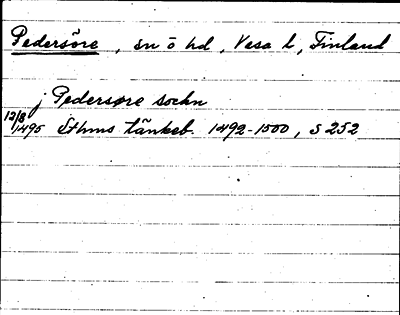 Pedersöre, sn ö hd, Vasa l, Finland
j Pedersøre sochn
12/8 1495 Sthms tänkeb. 1492-1500, s 252